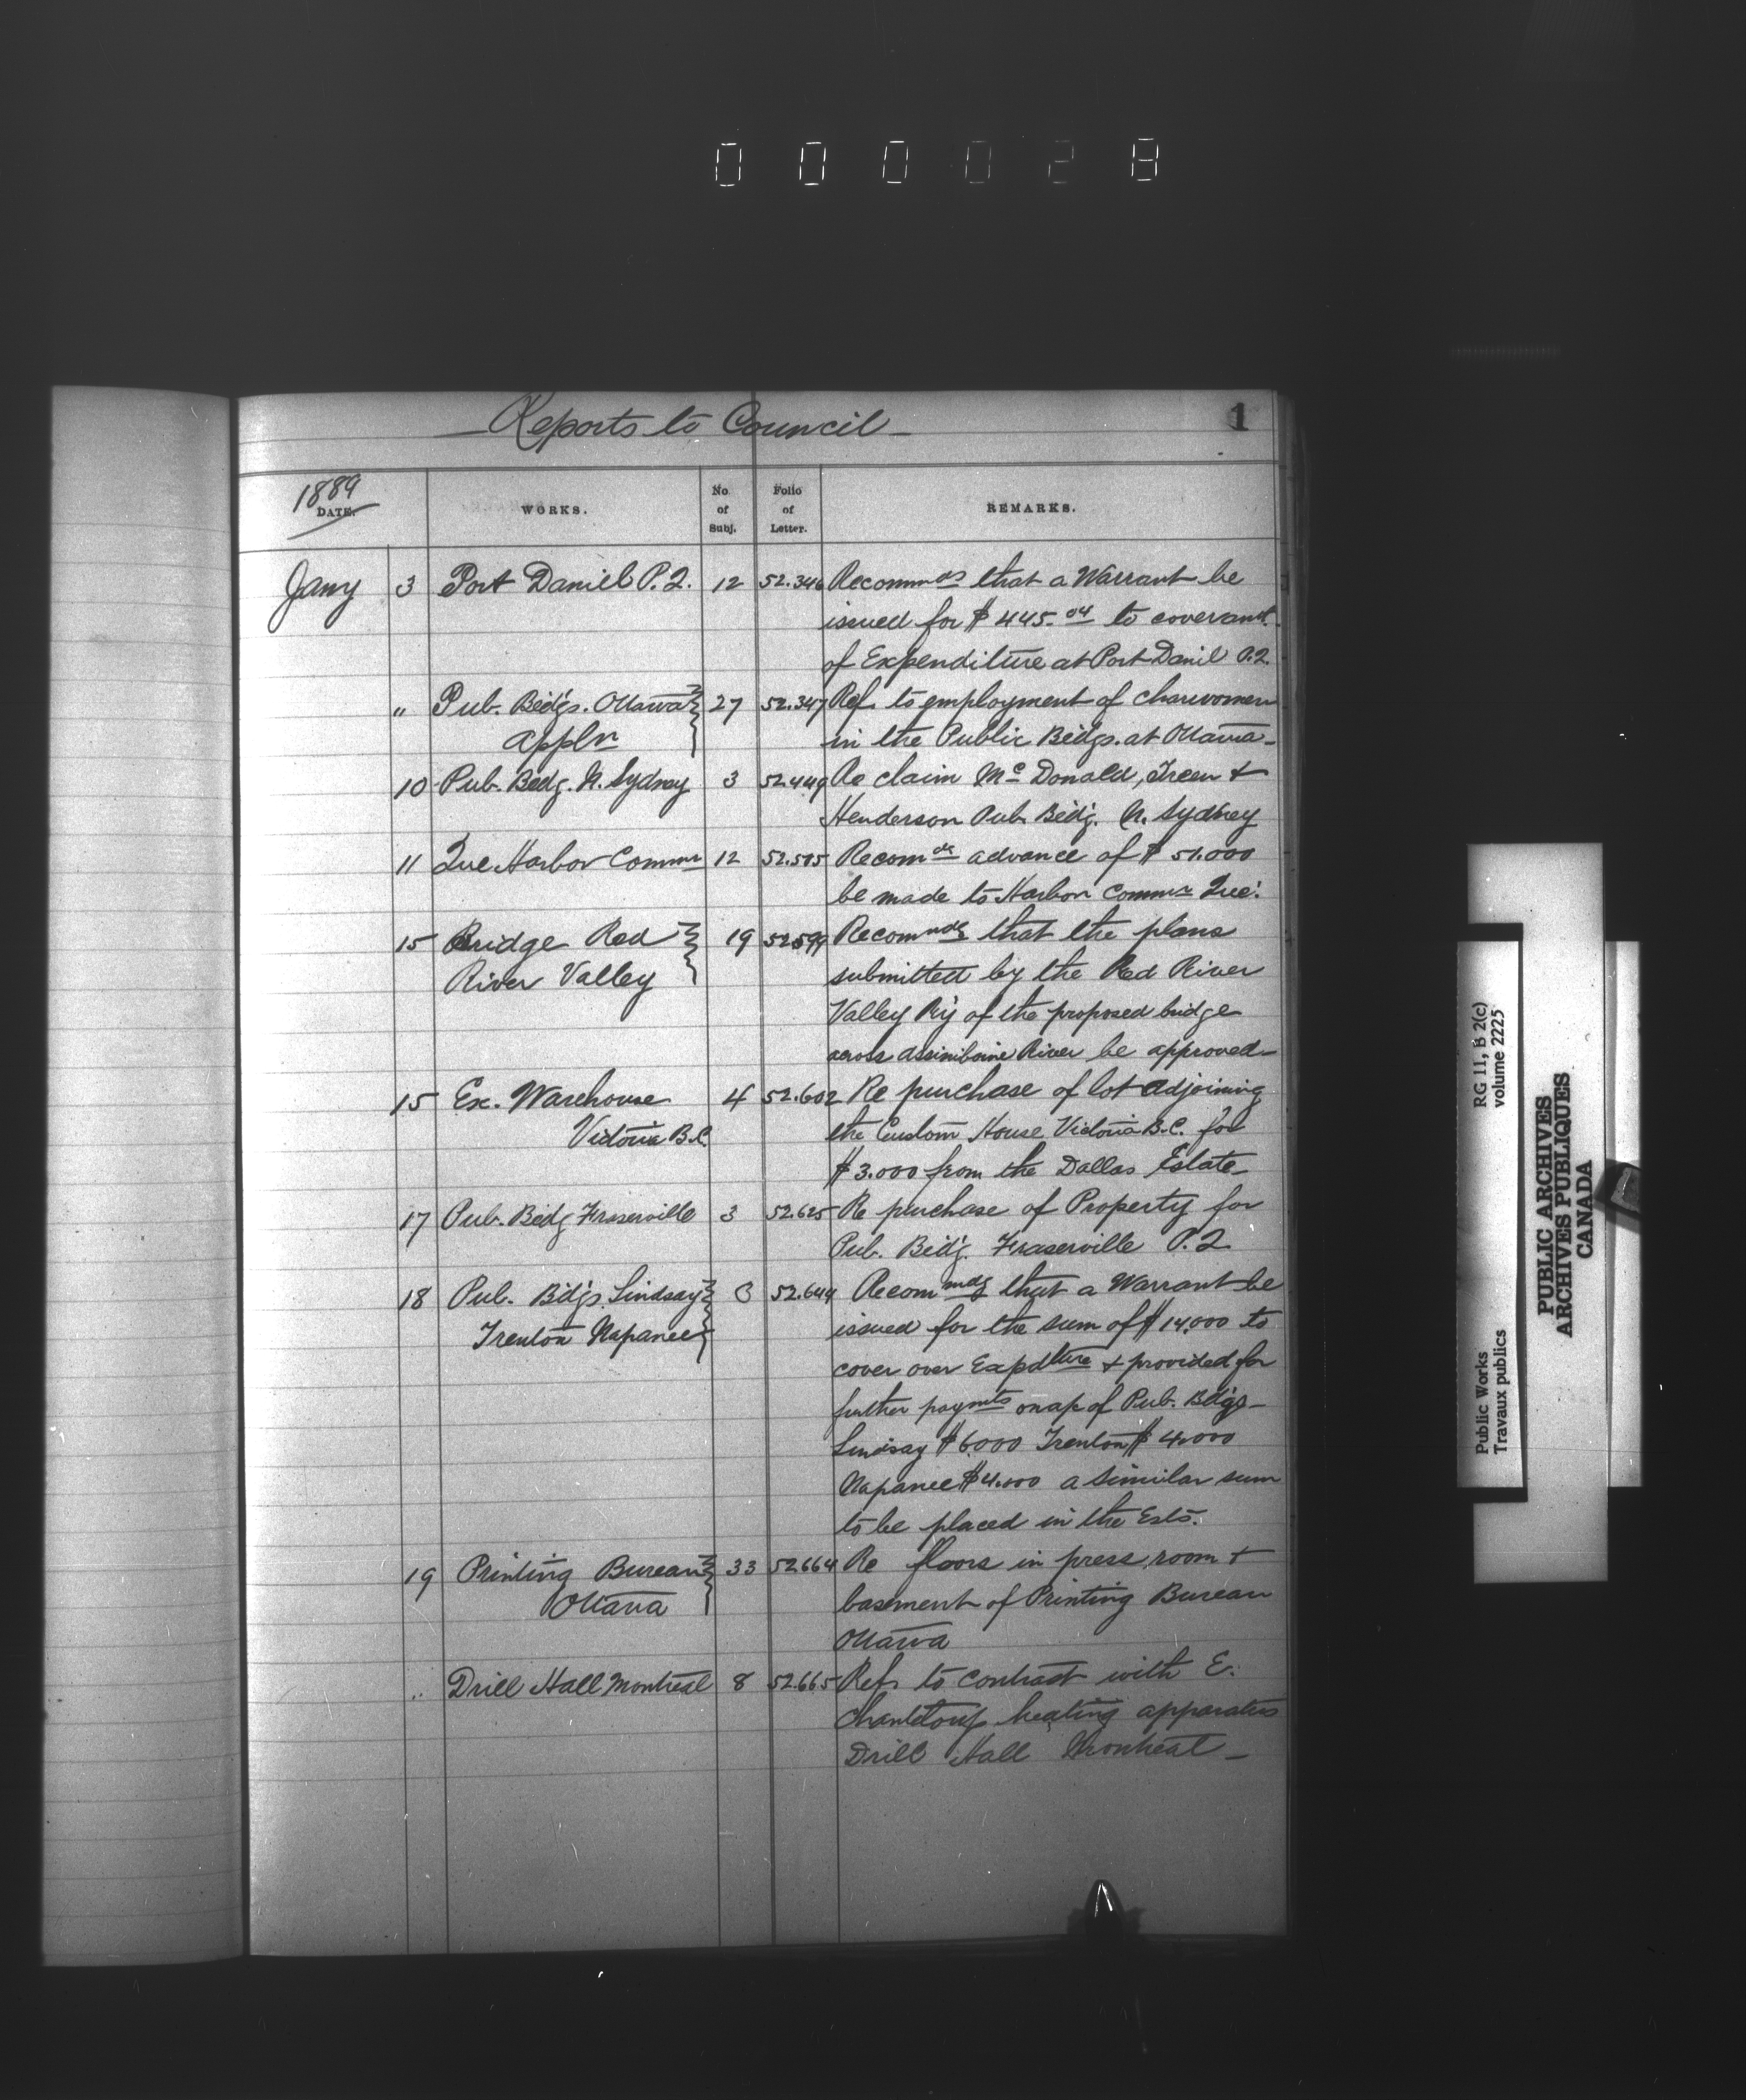 000028
Reports to Council
1
1889
DATE.
WORKS.
No of Subj.
Folio of Letter.
REMARKS.
Jany 3 Port Daniel P.Q. 12 52.346 Recommds that a Warrant be
issued for $445.04 to cover amt.
of Expenditure at Port Danil P.Q.
" Pub. Bldgs. Ottawa 27 52.347 Ref to employment of charwomen
appln in the Public Bldgs. at Ottawa
10 Pub. Bldg. N. Sydney 3 52.449 Re claim McDonald, Green +
Henderson Pub Bldg. N. Sydney
11 Que Harbor Commrs 12 52.515 Recomds advance of $51.000
be made to Harbor Commrs Que.
15 Bridge Red 19 52599 Recommds that the plans
River Valley submitted by the Red River
Valley Ry of the proposed bridge
across Assiniboine River be approved
15 Ex. Warehouse 4 52.602 Re purchase of lot adjoining
Victoria B.C. the Custom House Victoria B.C. for
$3.000 from the Dallas Estate
17 Pub. Bldg Fraserville 3 52.625 Re purchase of Property for
Pub. Bldg. Fraserville P.Q
18 Pub. Bldgs. Lindsay 3 52.644 Recommds that a Warrant be
Trenton Napanee issued for the sum of $14,000 to
cover over Expdture + provided for
further paymts on a/c of Pub. Bldgs
Lindsay $6.000 Trenton $4.000
Napanee $4.000 a similar sum
to be placed in the Ests.
19 Printing Bureau 33 52664 Re floors in press room +
Ottawa basement of Printing Bureau
Ottawa
" Drill Hall Montreal 8 52.665 Ref to contract with E.
Chanteloup heating apparatus
Drill Hall Montreal
Public Works RG 11, B 2(c)
Travaux publics volume 2225
PUBLIC ARCHIVES
ARCHIVES PUBLIQUES
CANADA